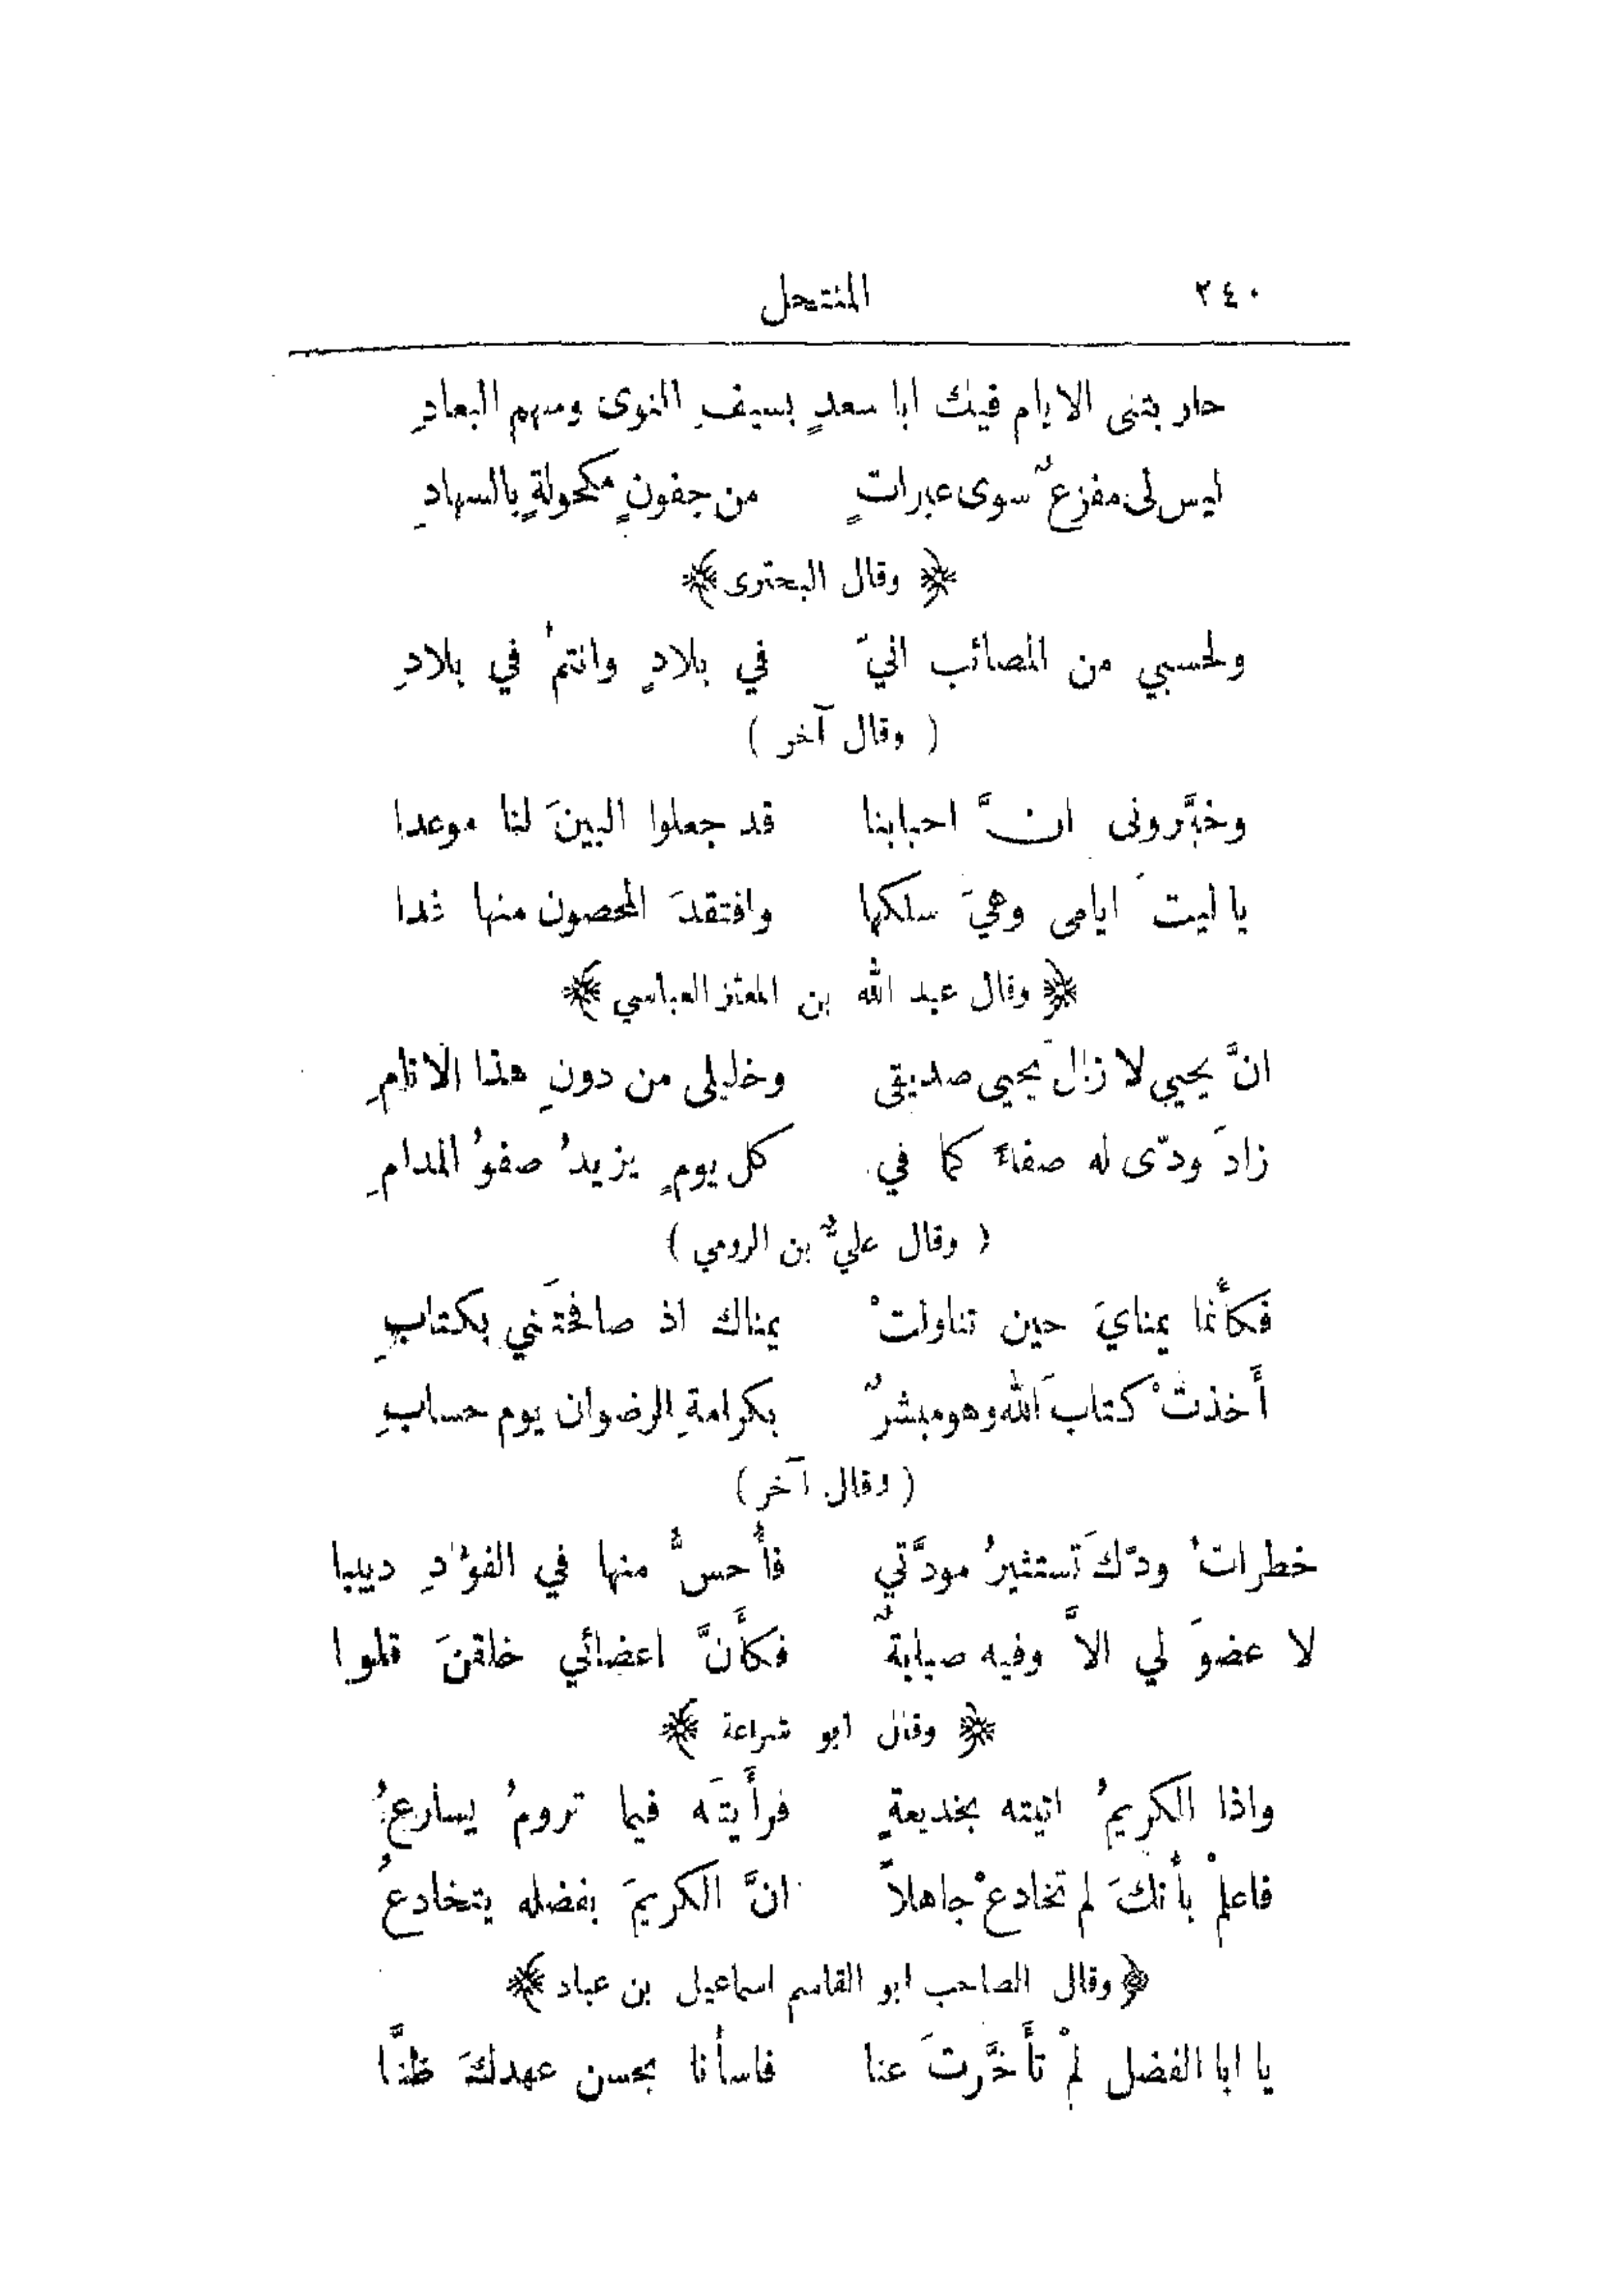 ٢٤٠ المنتحل
حاربتنى الايام فيك ابا سعدٍ بسيفِ النوى وسهم البعادِ
ليس لى مفزعٌ سوى عبراتٍ من جفونٍ مكحولةٍ بالسهادِ
﴿ وقال البحترى ﴾
ولحسبي من المصائب انيّ في بلادٍ وانتمُ في بلادِ
( وقال آخر )
وخبَّرونى انَّ احبابنا قد جعلوا البينَ لنا موعدا
يا ليتَ ايامى وهيَ سلكها وافتقدَ المحصون منها غدا
﴿ وقال عبد الله بن المعتز العباسي ﴾
انَّ يحيي لا زال يحيى صديقى وخليلى من دونِ هذا الانامِ
زادَ ودّى له صفاءً كما في كل يومٍ يزيدُ صفوُ المدامِ
( وقال عليٌّ بن الرومي )
فكأَنما يمنايَ حين تناولتْ يمناك اذ صافحتَني بكتابِ
أَخذتْ كتابَ الله وهو مبشرٌ بكرامةِ الرضوان يوم حسابِ
( وقال آخر )
خطراتُ ودّكَ تستثيرُ مودَّتي فأُحسُّ منها في الفؤادِ دبيبا
لا عضوَ لي الاَّ وفيه صبابةٌ فكأَنَّ اعضائي خلقنَ قلوبا
﴿ وقال ابو شراعة ﴾
واذا الكريمُ اتيته بخديعةٍ فرأَيتَه فيما ترومُ يسارعُ
فاعلمْ بأَنكَ لم تخادعْ جاهلاً انَّ الكريمَ بفضله يتخادعُ
﴿ وقال الصاحب ابو القاسم اسماعيل بن عباد ﴾
يا ابا الفضل لمْ تأَخَّرتَ عنا فاسأنا بحسن عهدكَ ظنَّا